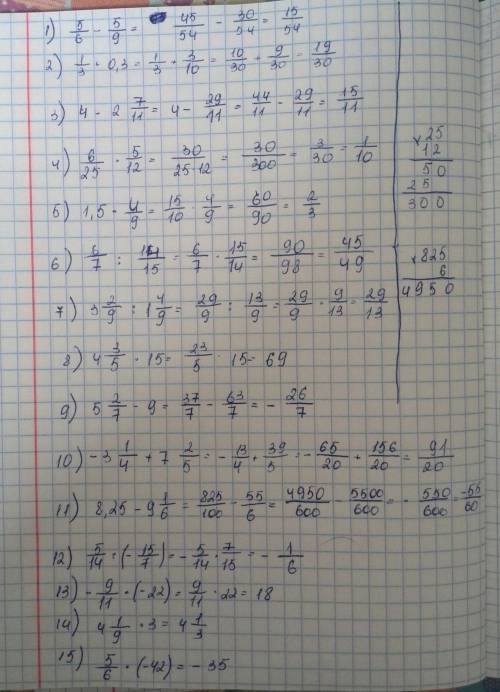 1) 5/6 - 5/9 = 45/54 - 30/54 = 15/54
2) 1/3 + 0,3 = 1/3 + 3/10 = 10/30 + 9/30 = 19/30
3) 4 - 2 7/11 = 4 - 29/11 = 44/11 - 29/11 = 15/11
4) 6/25 · 5/12 = 30/25·12 = 30/300 = 3/30 = 1/10
5) 1,5 · 4/9 = 15/10 · 4/9 = 60/90 = 2/3
6) 6/7 : 14/15 = 6/7 · 15/14 = 90/98 = 45/49
7) 3 2/9 : 1 4/9 = 29/9 : 13/9 = 29/9 · 9/13 = 29/13
8) 4 3/5 · 15 = 23/5 · 15 = 69
9) 5 2/7 - 9 = 37/7 - 63/7 = - 26/7
10) -3 1/4 + 7 2/5 = - 13/4 + 39/5 = - 65/20 + 156/20 = 91/20
11) 8,25 - 9 1/6 = 825/100 - 55/6 = 4950/600 - 5500/600 = - 550/600 = -55/60
12) 5/14 : (- 15/7) = - 5/14 · 7/15 = - 1/6
13) - 9/11 · (-22) = 9/11 · 22 = 18
14) 4 1/9 · 3 = 4 1/3
15) 5/6 · (-42) = - 35
× 25
12
50
25
300
× 825
6
4950